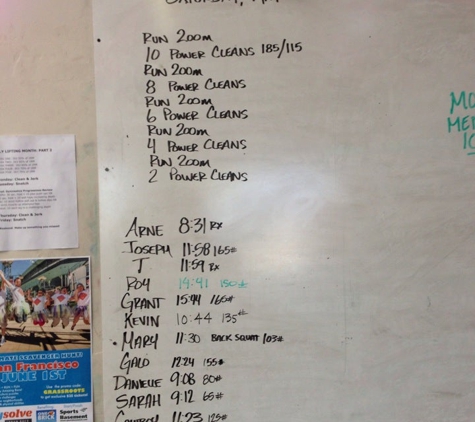 RUN 200m
10 POWER CLEANS 185/115
RUN 200m
8 POWER CLEANS
RUN 200m
6 POWER CLEANS
RUN 200m
4 POWER CLEANS
RUN 200m
2 POWER CLEANS
ARNE 8:31 RX
JOSEPH 11:58 165#
J 11:59 RX
ROY 14:41 150#
GRANT 15:44 165#
KEVIN 10:44 135#
MARY 11:30 BACK SQUAT 103#
GALO 12:24 155#
DANIELLE 9:08 80#
SARAH 9:12 65#
11:23 125#
MO
LIFTING MONTH, PART 2
Clean & Jerk
Snatch
MATE SCAVENGER HUNT!
an Francisco
JUNE 1ST
GRASSROOTS
solve
Sports
Basement